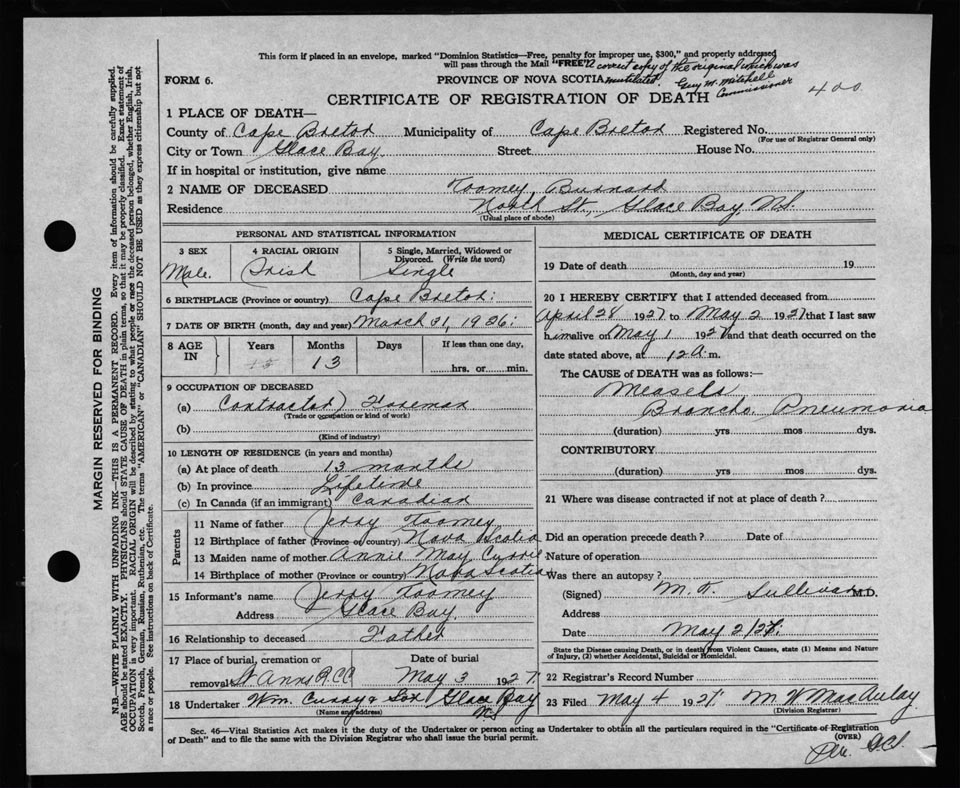 This form if placed in an envelope, marked "Dominion Statistics—Free, penalty for improper use, $300," and properly addressed
will pass through the Mail "FREE" correct copy of the original which was
FORM 6. PROVINCE OF NOVA SCOTIA mutilated. Guy M. Mitchell
Commissioner
CERTIFICATE OF REGISTRATION OF DEATH 400
1 PLACE OF DEATH—
County of Cape Breton Municipality of Cape Breton Registered No.
(For use of Registrar General only)
City or Town Glace Bay. Street House No.
If in hospital or institution, give name
2 NAME OF DECEASED Toomey, Burnard
Residence North St., Glace Bay, N.S.
(Usual place of abode)
PERSONAL AND STATISTICAL INFORMATION
3 SEX 4 RACIAL ORIGIN 5 Single, Married, Widowed or
Divorced. (Write the word)
Male. Irish Single
6 BIRTHPLACE (Province or country) Cape Breton.
7 DATE OF BIRTH (month, day and year) March 31, 1926.
8 AGE IN Years Months Days If less than one day,
13 hrs. or min.
9 OCCUPATION OF DECEASED
(a) Contractor) Foreman
(Trade or occupation or kind of work)
(b)
(Kind of industry)
10 LENGTH OF RESIDENCE (in years and months)
(a) At place of death 13 months
(b) In province Lifetime
(c) In Canada (if an immigrant) Canadian
Parents
11 Name of father Jerry Toomey
12 Birthplace of father (Province or country) Nova Scotia
13 Maiden name of mother Annie May Currie
14 Birthplace of mother (Province or country) Nova Scotia
15 Informant's name Jerry Toomey
Address Glace Bay.
16 Relationship to deceased Father
17 Place of burial, cremation or Date of burial
removal St Anns R.C.C May 3 1927.
18 Undertaker Wm. Curry & Son Glace Bay
(Name and address) N.S.
MEDICAL CERTIFICATE OF DEATH
19 Date of death 19
(Month, day and year)
20 I HEREBY CERTIFY that I attended deceased from
April 28 1927 to May 2 1927 that I last saw
him alive on May 1 1927 and that death occurred on the
date stated above, at 12 a. m.
The CAUSE of DEATH was as follows:
Measels
Broncho. Pneumonia
(duration) yrs mos dys.
CONTRIBUTORY
(duration) yrs mos dys.
21 Where was disease contracted if not at place of death?
Did an operation precede death? Date of
Nature of operation
Was there an autopsy?
(Signed) M. T. Sullivan M.D.
Address
Date May 2/27.
State the Disease causing Death, or in death from Violent Causes, state (1) Means and Nature
of Injury, (2) whether Accidental, Suicidal or Homicidal.
22 Registrar's Record Number
23 Filed May 4 1927. M W MacAulay
(Division Registrar)
Sec. 46—Vital Statistics Act makes it the duty of the Undertaker or person acting as Undertaker to obtain all the particulars required in the "Certificate of Registration
of Death" and to file the same with the Division Registrar who shall issue the burial permit.
(OVER)
MARGIN RESERVED FOR BINDING
N.B.—WRITE PLAINLY WITH UNFADING INK—THIS IS A PERMANENT RECORD. Every item of information should be carefully supplied.
AGE should be stated EXACTLY. PHYSICIANS should STATE CAUSE OF DEATH in plain terms, so that it may be properly classified. Exact statement of
OCCUPATION is very important. RACIAL ORIGIN will be described by stating to what people or race the deceased person belonged, whether English, Irish,
Scotch, French, German, Russian, Ruthenian, etc. The terms "AMERICAN" or "CANADIAN" SHOULD NOT BE USED as they express citizenship but not
a race or people. See instructions on back of Certificate.